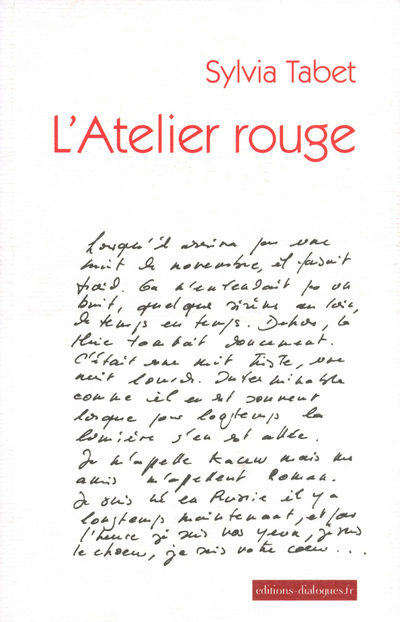 Sylvia Tabet
L'Atelier rouge
Lorsqu'il arriva par une
nuit de novembre, il faisait
froid. On n'entendait pas un
bruit, quelque sirène au loin,
de temps en temps. Dehors, la
pluie tombait doucement.
C'était une nuit triste, une
nuit lourde. Interminable
comme il en est souvent
lorsque pour longtemps la
lumière s'en est allée.
Je m'apelle Kacew mais mes
amis m'apellent Roman.
Je suis né en Russie il y a
longtemps maintenant, et pour
l'heure je suis vos yeux, je suis
le choeur, je suis votre coeur...
editions-dialogues.fr